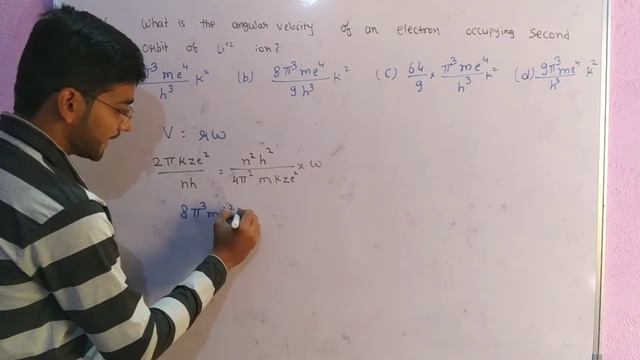 What is the angular velocity of an electron occupying second
orbit of Li⁺² ion?
π³me⁴/h³ K² (b) 8π³me⁴/9h³ K² (c) 64/9 × π³me⁴/h³ K² (d) 9π³me⁴/h³ K²
V = rω
2πkze²/nh = n²h²/4π²mkze² × ω
8π³m